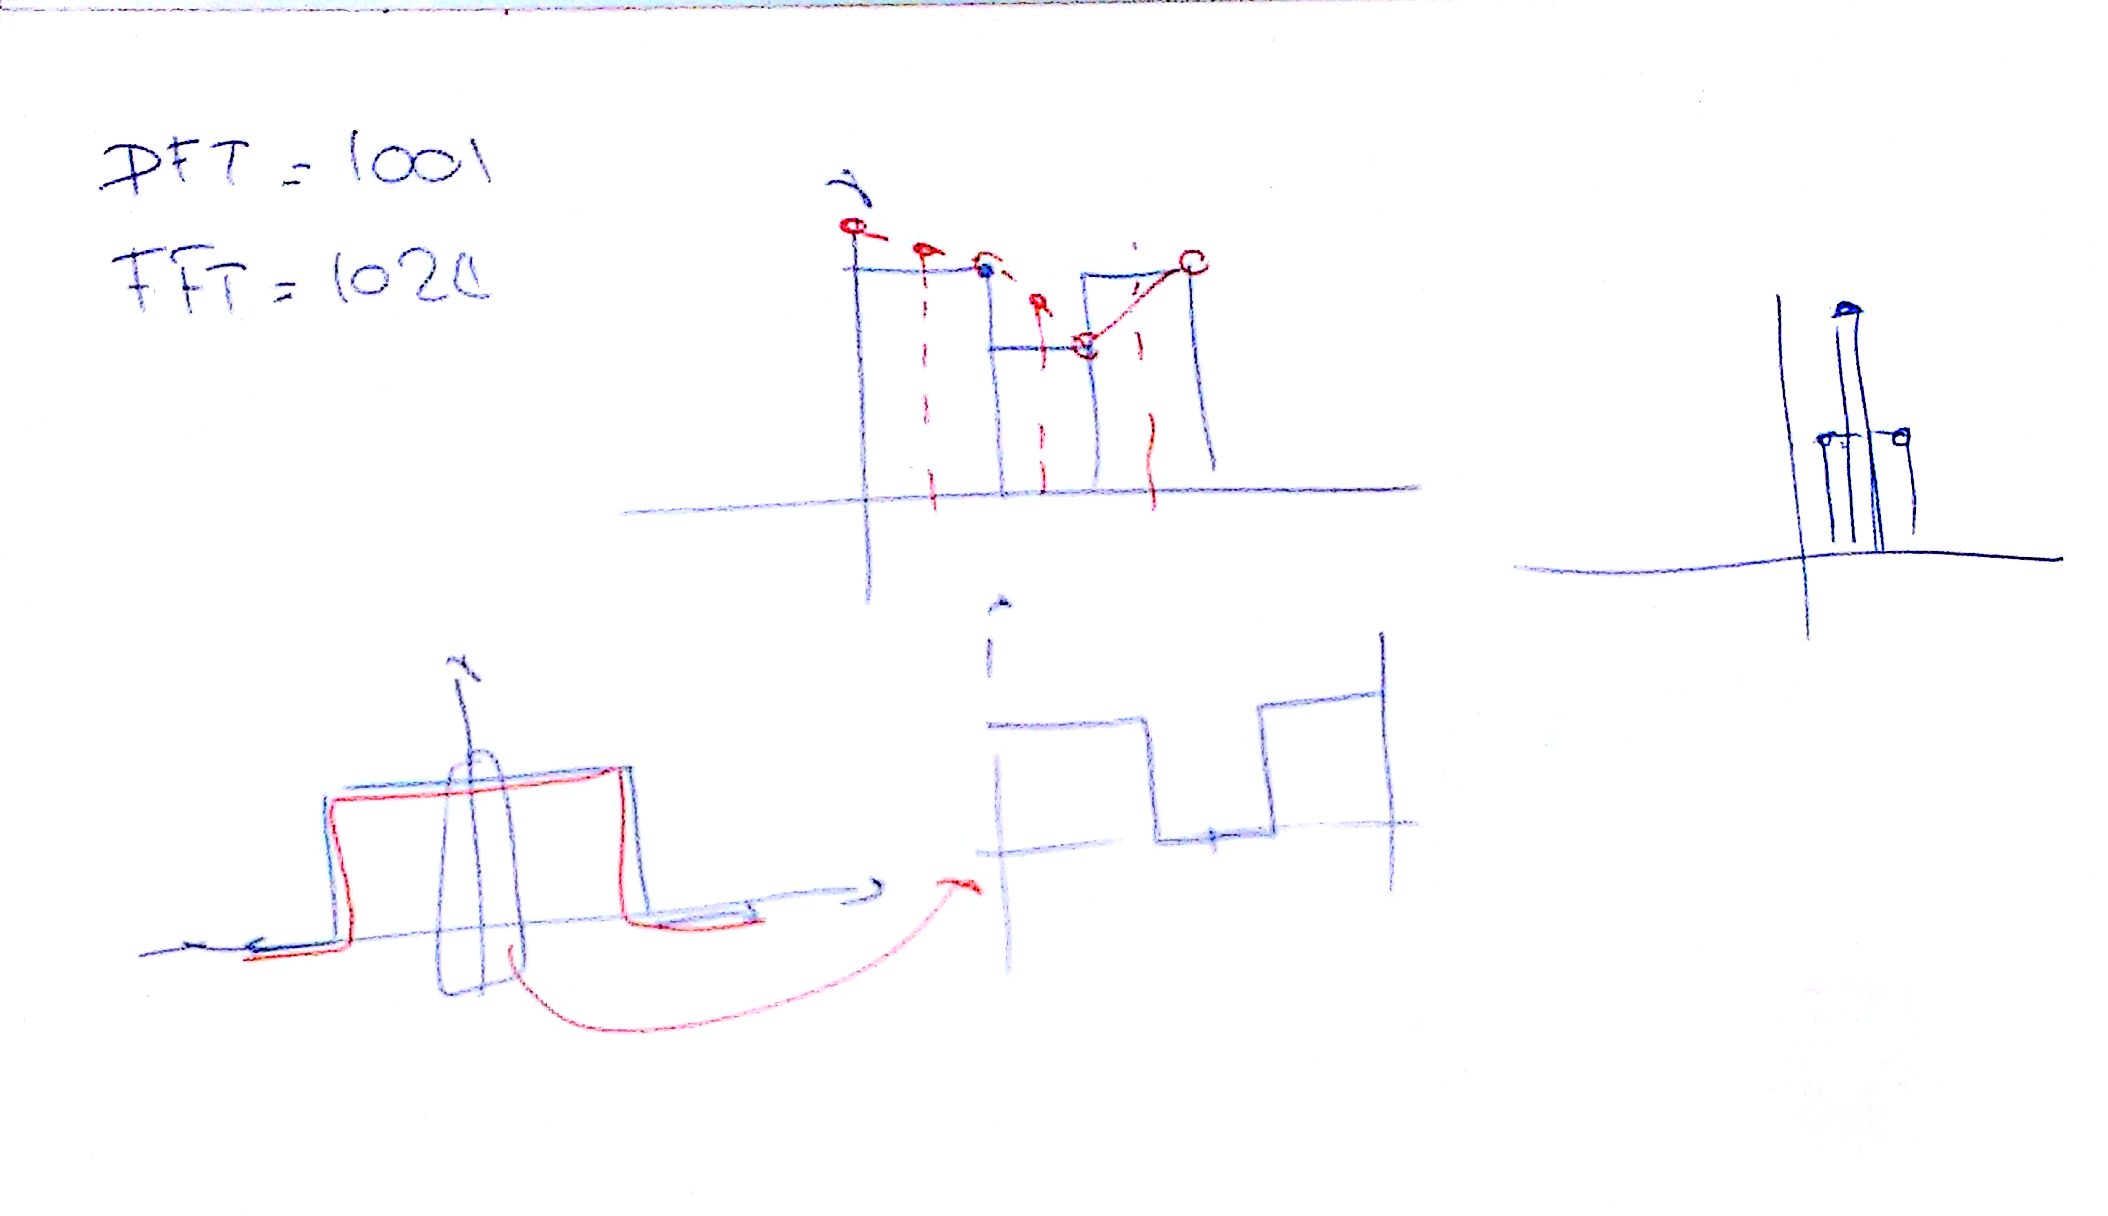 DFT = 1001
FFT = 1024